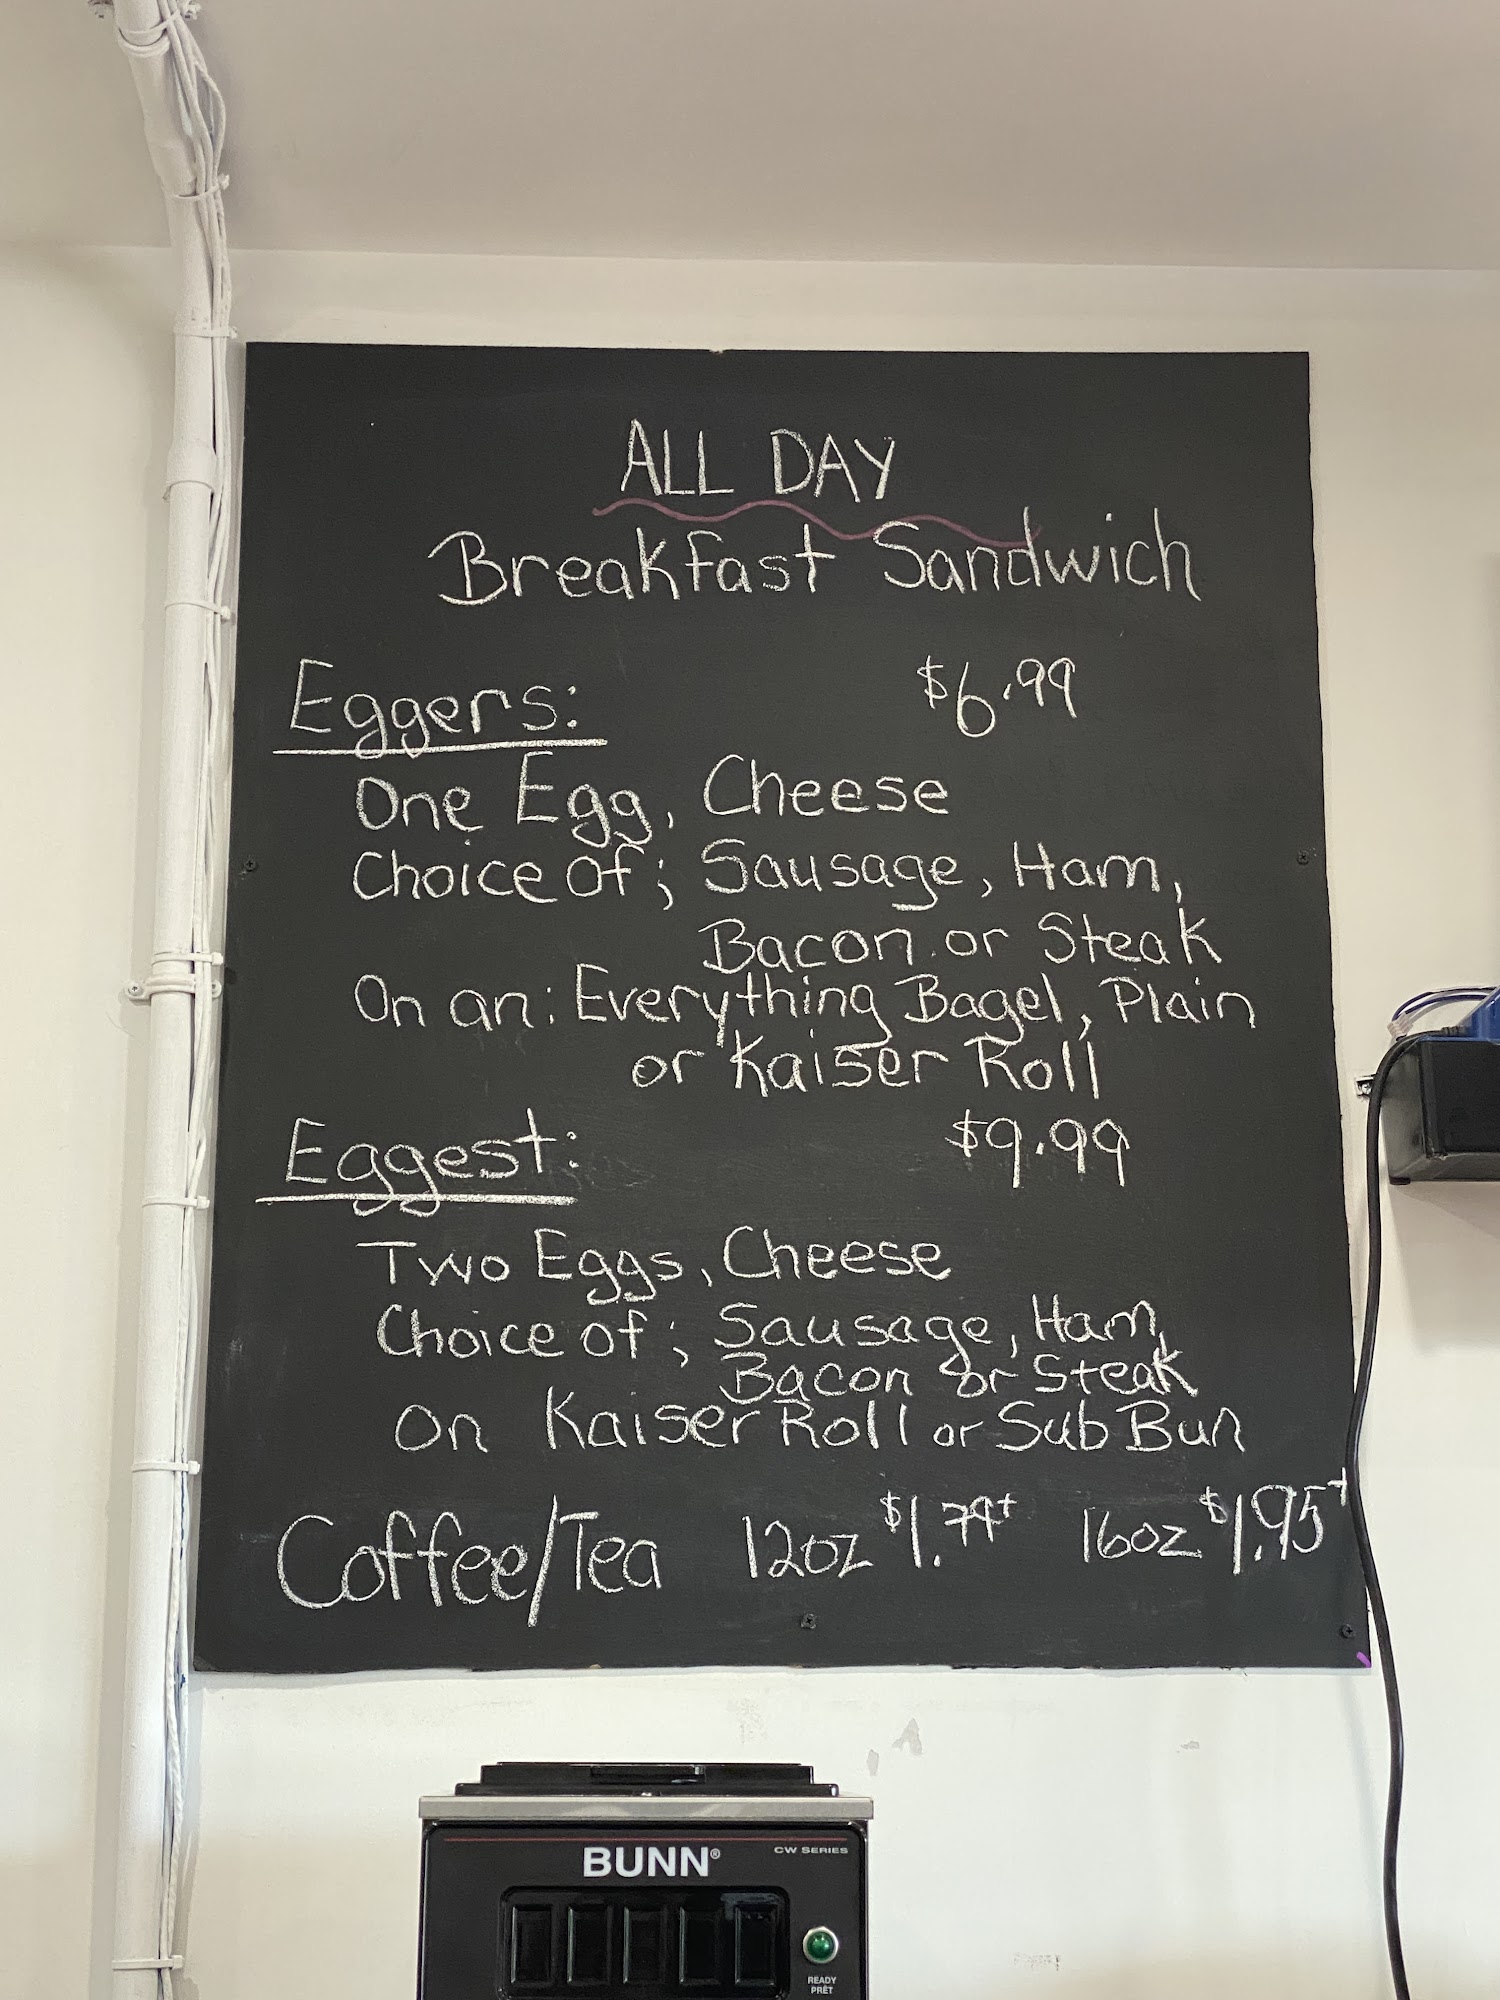 ALL DAY
Breakfast Sandwich
Eggers: $6.99
One Egg, Cheese
Choice Of; Sausage, Ham,
Bacon or Steak
On an: Everything Bagel, Plain
or Kaiser Roll
Eggest: $9.99
Two Eggs, Cheese
Choice of; Sausage, Ham,
Bacon or Steak
on Kaiser Roll or Sub Bun
Coffee/Tea 12oz $1.79+ 16oz $1.95+
BUNN® CW SERIES
READY
PRÊT